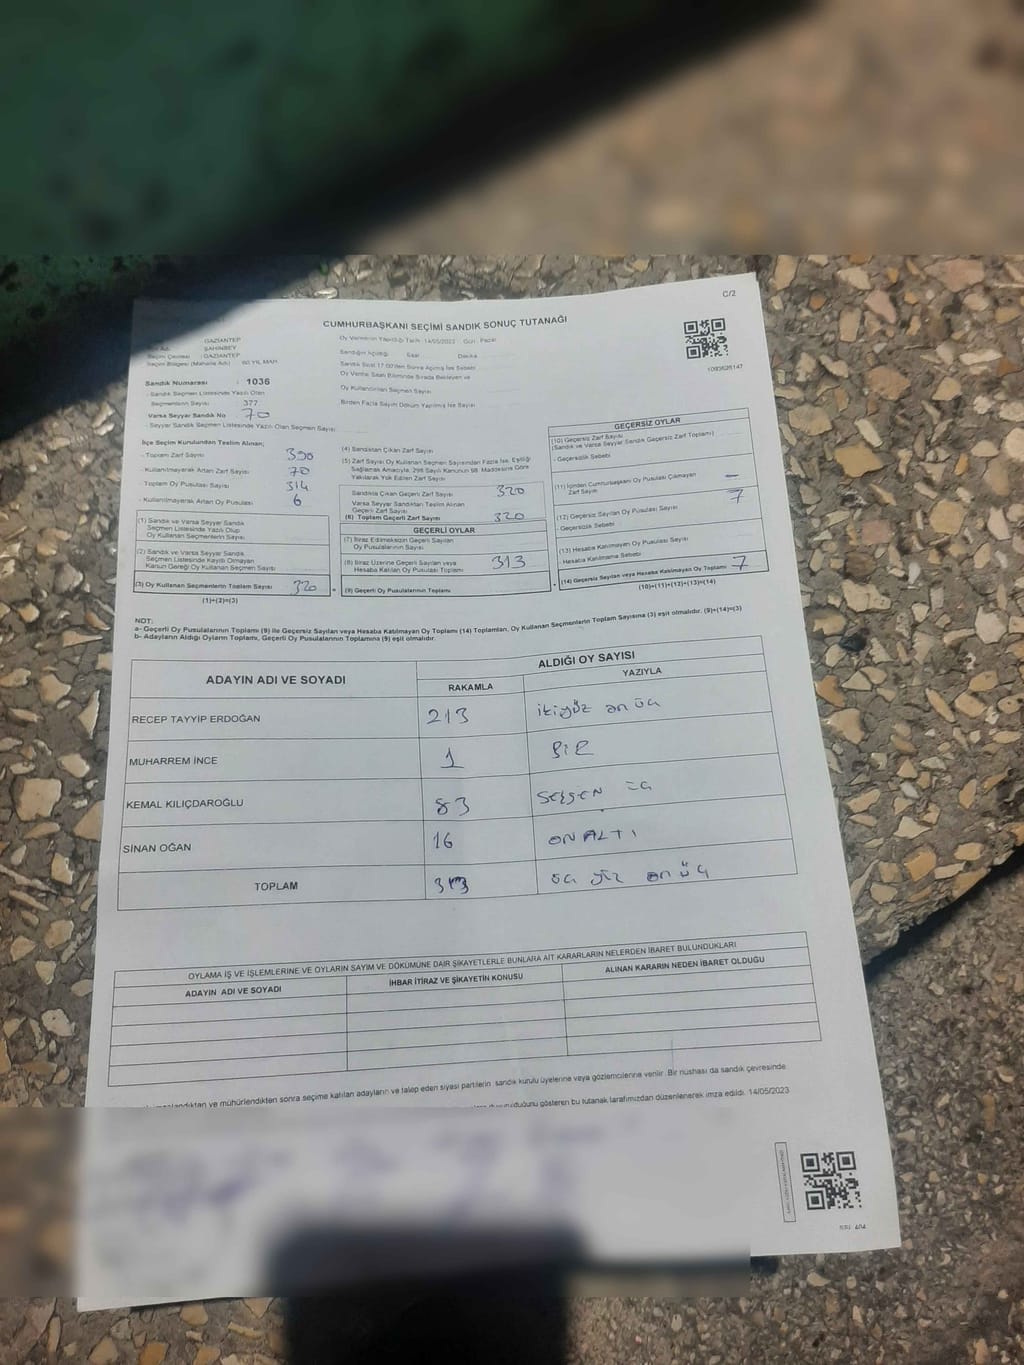 C/2
CUMHURBAŞKANI SEÇİMİ SANDIK SONUÇ TUTANAĞI
GAZİANTEP
ŞAHİNBEY
Seçim Çevresi : GAZİANTEP
Seçim Bölgesi (Mahalle Adı) : 60.YIL MAH.
Oy Vermenin Yapıldığı Tarih : 14/05/2023 Gün : Pazar
Sandığın Açıldığı Saat Dakika
Oy Kullandırılan Seçmen Sayısı
Birden Fazla Sayım Döküm Yapılmış İse Sayısı
Sandık Numarası : 1036
- Sandık Seçmen Listesinde Yazılı Olan
Seçmenlerin Sayısı : 377
Varsa Seyyar Sandık No 70
- Seyyar Sandık Seçmen Listesinde Yazılı Olan Seçmen Sayısı
İlçe Seçim Kurulundan Teslim Alınan;
- Toplam Zarf Sayısı 390
- Kullanılmayarak Artan Zarf Sayısı 70
- Toplam Oy Pusulası Sayısı 314
- Kullanılmayarak Artan Oy Pusulası 6
(1) Sandık ve Varsa Seyyar Sandık
Seçmen Listesinde Yazılı Olup
Oy Kullanan Seçmenlerin Sayısı
(2) Sandık ve Varsa Seyyar Sandık
Seçmen Listesinde Kayıtlı Olmayan
Kanun Gereği Oy Kullanan Seçmen Sayısı
(3) Oy Kullanan Seçmenlerin Toplam Sayısı 320
(1)+(2)=(3)
(4) Sandıktan Çıkan Zarf Sayısı
(5) Zarf Sayısı Oy Kullanan Seçmen Sayısından Fazla İse, Eşitliği
Sağlamak Amacıyla, 298 Sayılı Kanunun 98. Maddesine Göre
Yakılarak Yok Edilen Zarf Sayısı
Sandıkta Çıkan Geçerli Zarf Sayısı 320
Varsa Seyyar Sandıktan Teslim Alınan
Geçerli Zarf Sayısı
(6) Toplam Geçerli Zarf Sayısı 320
GEÇERLİ OYLAR
(7) İtiraz Edilmeksizin Geçerli Sayılan
Oy Pusulalarının Sayısı
(8) İtiraz Üzerine Geçerli Sayılan veya
Hesaba Katılan Oy Pusulası Toplamı 313
(9) Geçerli Oy Pusulalarının Toplamı
GEÇERSİZ OYLAR
(10) Geçersiz Zarf Sayısı
(Sandık ve Varsa Seyyar Sandık Geçersiz Zarf Toplamı)
- Geçersizlik Sebebi
(11) İçinden Cumhurbaşkanı Oy Pusulası Çıkmayan
Zarf Sayısı -
7
(12) Geçersiz Sayılan Oy Pusulası Sayısı
- Geçersizlik Sebebi
(13) Hesaba Katılmayan Oy Pusulası Sayısı
- Hesaba Katılmama Sebebi
(14) Geçersiz Sayılan veya Hesaba Katılmayan Oy Toplamı 7
(10)+(11)+(12)+(13)=(14)
NOT:
a- Geçerli Oy Pusulalarının Toplamı (9) ile Geçersiz Sayılan veya Hesaba Katılmayan Oy Toplamı (14) Toplamları, Oy Kullanan Seçmenlerin Toplam Sayısına (3) eşit olmalıdır. (9)+(14)=(3)
b- Adayların Aldığı Oyların Toplamı, Geçerli Oy Pusulalarının Toplamına (9) eşit olmalıdır.
ADAYIN ADI VE SOYADI
ALDIĞI OY SAYISI
RAKAMLA YAZIYLA
RECEP TAYYİP ERDOĞAN 213 ikiyüz on üç
MUHARREM İNCE 1 BİR
KEMAL KILIÇDAROĞLU 83 SEKSEN üç
SİNAN OĞAN 16 ON ALTI
TOPLAM 313 üç yüz on üç
OYLAMA İŞ VE İŞLEMLERİNE VE OYLARIN SAYIM VE DÖKÜMÜNE DAİR ŞİKAYETLERLE BUNLARA AİT KARARLARIN NELERDEN İBARET BULUNDUKLARI
ADAYIN ADI VE SOYADI İHBAR İTİRAZ VE ŞİKAYETİN KONUSU ALINAN KARARIN NEDEN İBARET OLDUĞU
ve mühürlendikten sonra seçime katılan adayların ve talep eden siyasi partilerin sandık kurulu üyelerine veya gözlemcilerine verilir. Bir nüshası da sandık çevresinde
gösteren bu tutanak tarafımızdan düzenlenerek imza edildi. 14/05/2023